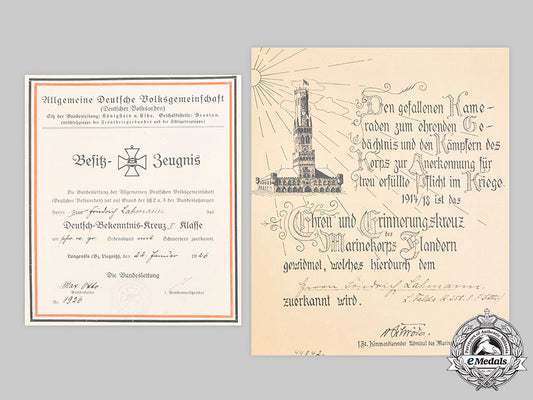 Allgemeine Deutsche Volksgemeinschaft
(Deutscher Volksorden)
Sitz der Bundesleitung: Königstein a. Elbe. Geschäftsstelle: Breslau.
Besitz- Zeugnis
Die Bundesleitung der Allgemeinen Deutschen Volksgemeinschaft
(Deutscher Volksorden) hat auf Grund der §§ 2 u. 3 der Bundessatzungen
Herrn Friedrich Lahmann das
Deutsch-Bekenntnis-Kreuz I Klasse
am Ordensband mit Schwertern zuerkannt.
den 22. Januar 1926
Die Bundesleitung
Max Otto
Nr. 1926
Den gefallenen Kame-
raden zum ehrenden Ge-
dächtnis und den Kämpfern des
Korps zur Anerkennung für
treu erfüllte Pflicht im Kriege
1914/18 ist das
Ehren und Erinnerungskreuz
des
Marinekorps Flandern
gewidmet, welches hierdurch dem
Herrn Friedrich Lahmann
zuerkannt wird.
Kommandierender Admiral des Marine
44842.
eMedals